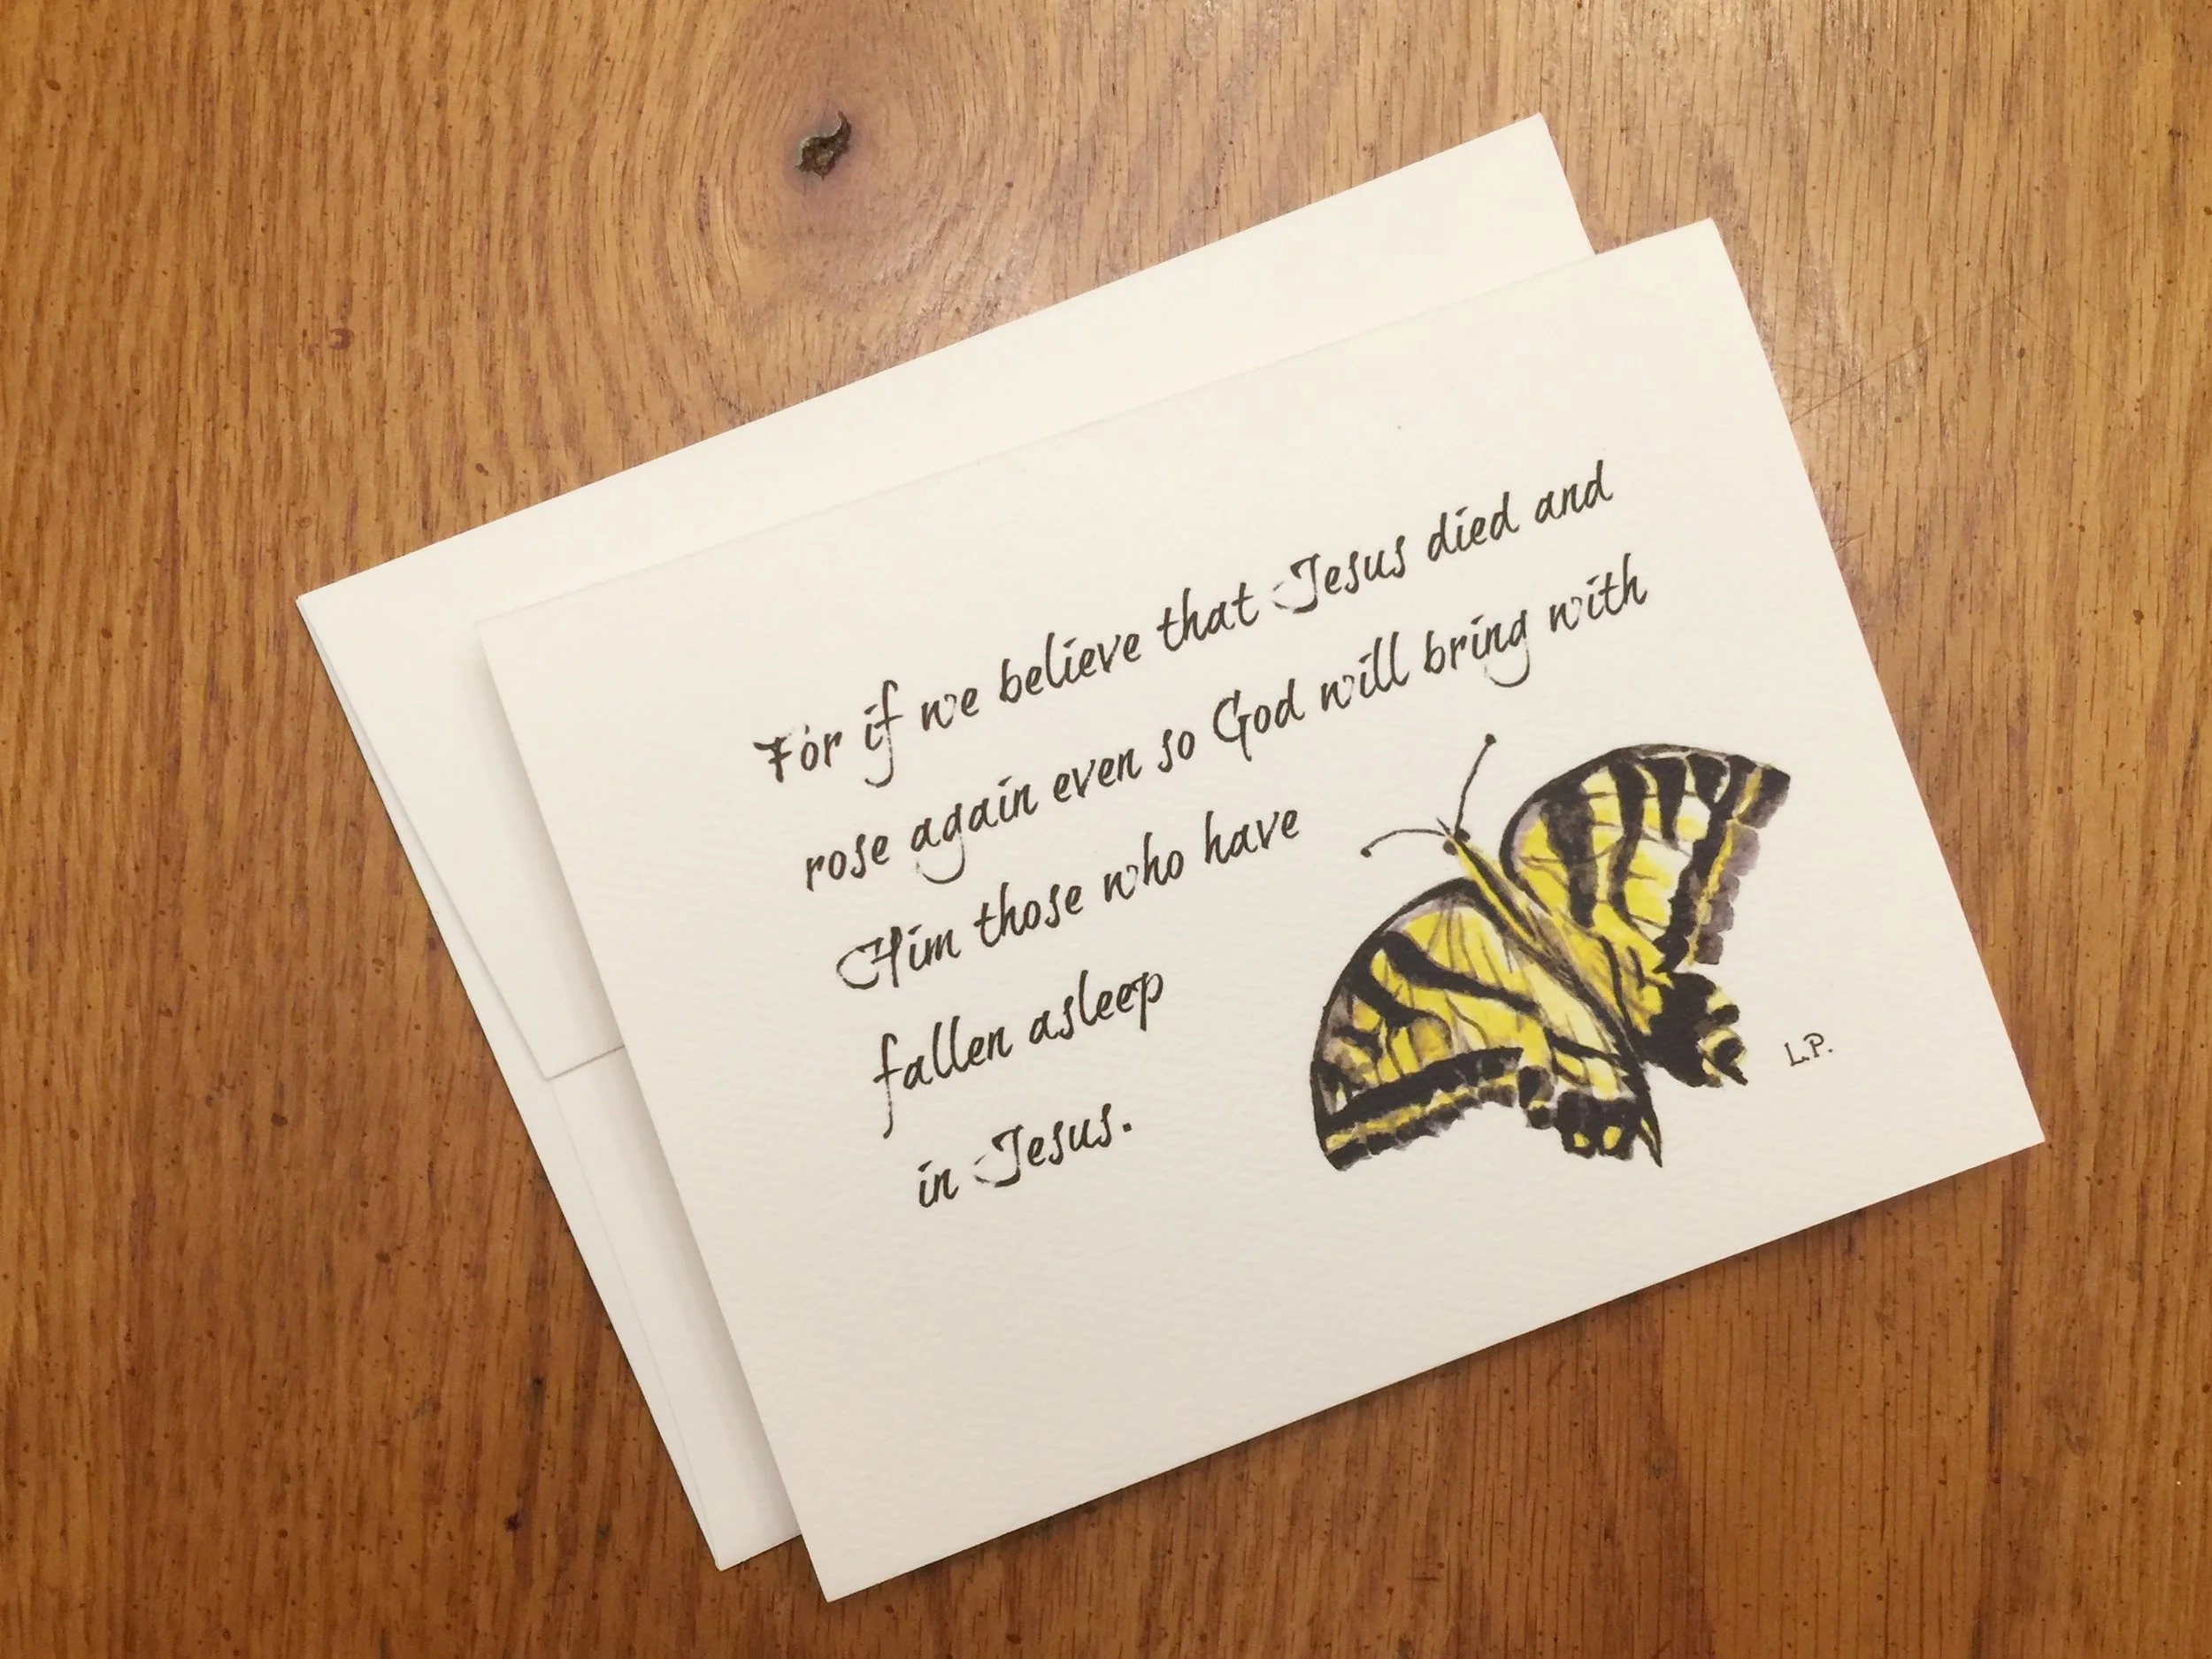 For if we believe that Jesus died and
rose again even so God will bring with
Him those who have
fallen asleep
in Jesus.
L.P.